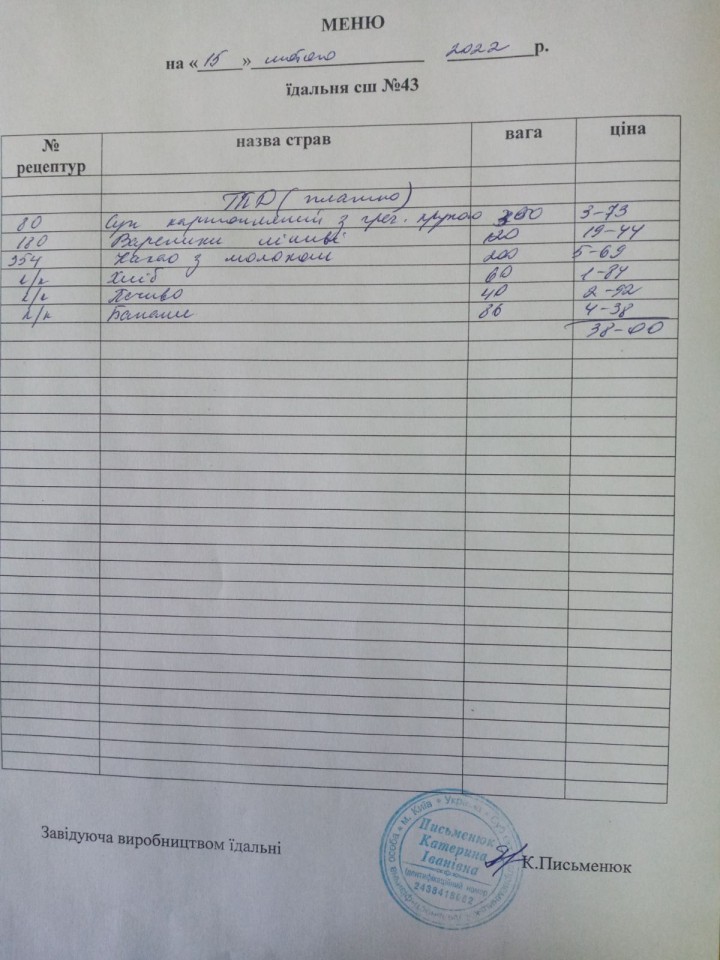 МЕНЮ
на « 15 » лютого 2022 р.
їдальня сш №43
№ рецептур назва страв вага ціна
ГПД (платно)
80 Суп картопляний з греч. крупою 3-73
180 Вареники ліниві 120 19-44
354 Какао з молоком 200 5-69
к/к Хліб 60 1-84
к/к Печиво 40 2-92
к/к Банани 86 4-38
38-00
Завідуюча виробництвом їдальні К.Письменюк
м. Київ • Україна
Фізична особа
Письменюк
Катерина
Іванівна
ідентифікаційний номер